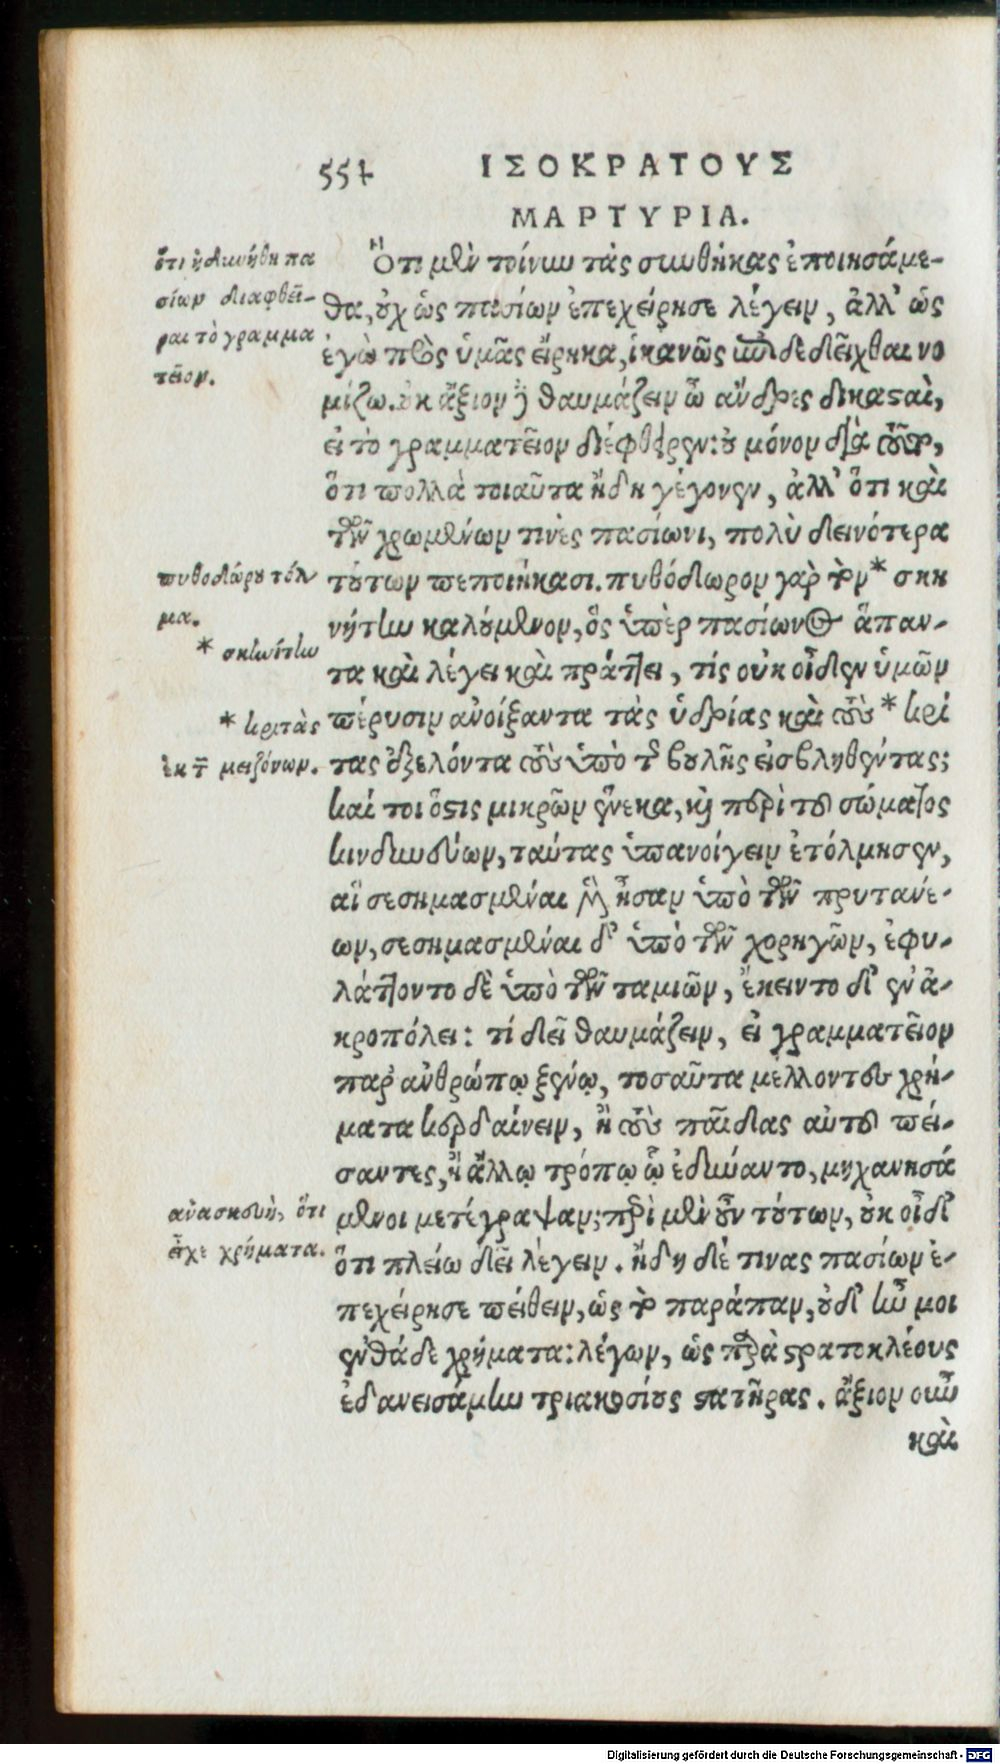 554 ΙΣΟΚΡΑΤΟΥΣ
ΜΑΡΤΥΡΙΑ.
ὅτι ἠδυνήθη πα
σίων διαφθεῖ-
ραι τὸ γραμμα
τεῖον.
Ὅτι μὲν τοίνυν τὰς συνθήκας ἐποιησάμε-
θα, οὐχ ὡς πασίων ἐπεχείρησε λέγειν, ἀλλ' ὡς
ἐγὼ πρὸς ὑμᾶς εἴρηκα, ἱκανῶς νῦν δεδεῖχθαι νο
μίζω. οὐκ ἄξιον δὲ θαυμάζειν ὦ ἄνδρες δικασταὶ,
εἰ τὸ γραμματεῖον διέφθειρεν: οὐ μόνον διὰ τοῦτο,
ὅτι πολλὰ τοιαῦτα ἤδη γέγονεν, ἀλλ' ὅτι καὶ
τῶν χρωμένων τινὲς πασίωνι, πολὺ δεινότερα
πυθοδώρου τόλ
μα.
* σκηνίτην
τούτων πεποιήκασι. πυθόδωρον γὰρ τὸν * σκη
νήτην καλούμενον, ὃς ὑπὲρ πασίωνος ἅπαν-
τα καὶ λέγει καὶ πράττει, τίς οὐκ οἶδεν ὑμῶν
* κριτὰς
ἐκ τ μειζόνων.
πέρυσιν ἀνοίξαντα τὰς ὑδρίας καὶ τοὺς * κρί
τας ἐξελόντα τοὺς ὑπὸ τῆς βουλῆς εἰσβληθέντας;
καί τοι ὅστις μικρῶν ἕνεκα, καὶ περὶ τοῦ σώματος
κινδυνεύων, ταύτας ὑπανοίγειν ἐτόλμησεν,
αἳ σεσημασμέναι μὲν ἦσαν ὑπὸ τῶν πρυτανέ-
ων, σεσημασμέναι δ' ὑπὸ τῶν χορηγῶν, ἐφυ-
λάττοντο δὲ ὑπὸ τῶν ταμιῶν, ἔκειντο δ' ἐν ἀ-
κροπόλει: τί δεῖ θαυμάζειν, εἰ γραμματεῖον
παρ' ἀνθρώπῳ ξένῳ, τοσαῦτα μέλλοντες χρή-
ματα κερδαίνειν, ἢ τοὺς παῖδας αὐτοῦ πεί-
σαντες, ἢ ἄλλῳ τρόπῳ ᾧ ἐδύναντο, μηχανησά
ἀνασκευὴ, ὅτι
εἶχε χρήματα.
μενοι μετέγραψαν; περὶ μὲν οὖν τούτων, οὐκ οἶδ'
ὅτι πλείω δεῖ λέγειν. ἤδη δέ τινας πασίων ἐ-
πεχείρησε πείθειν, ὡς τὸ παράπαν, οὐδ' ἦν μοι
ἐνθάδε χρήματα: λέγων, ὡς παρὰ στρατοκλέους
ἐδανεισάμην τριακοσίους στατῆρας. ἄξιον οὖν
καὶ
Digitalisierung gefördert durch die Deutsche Forschungsgemeinschaft - DFG